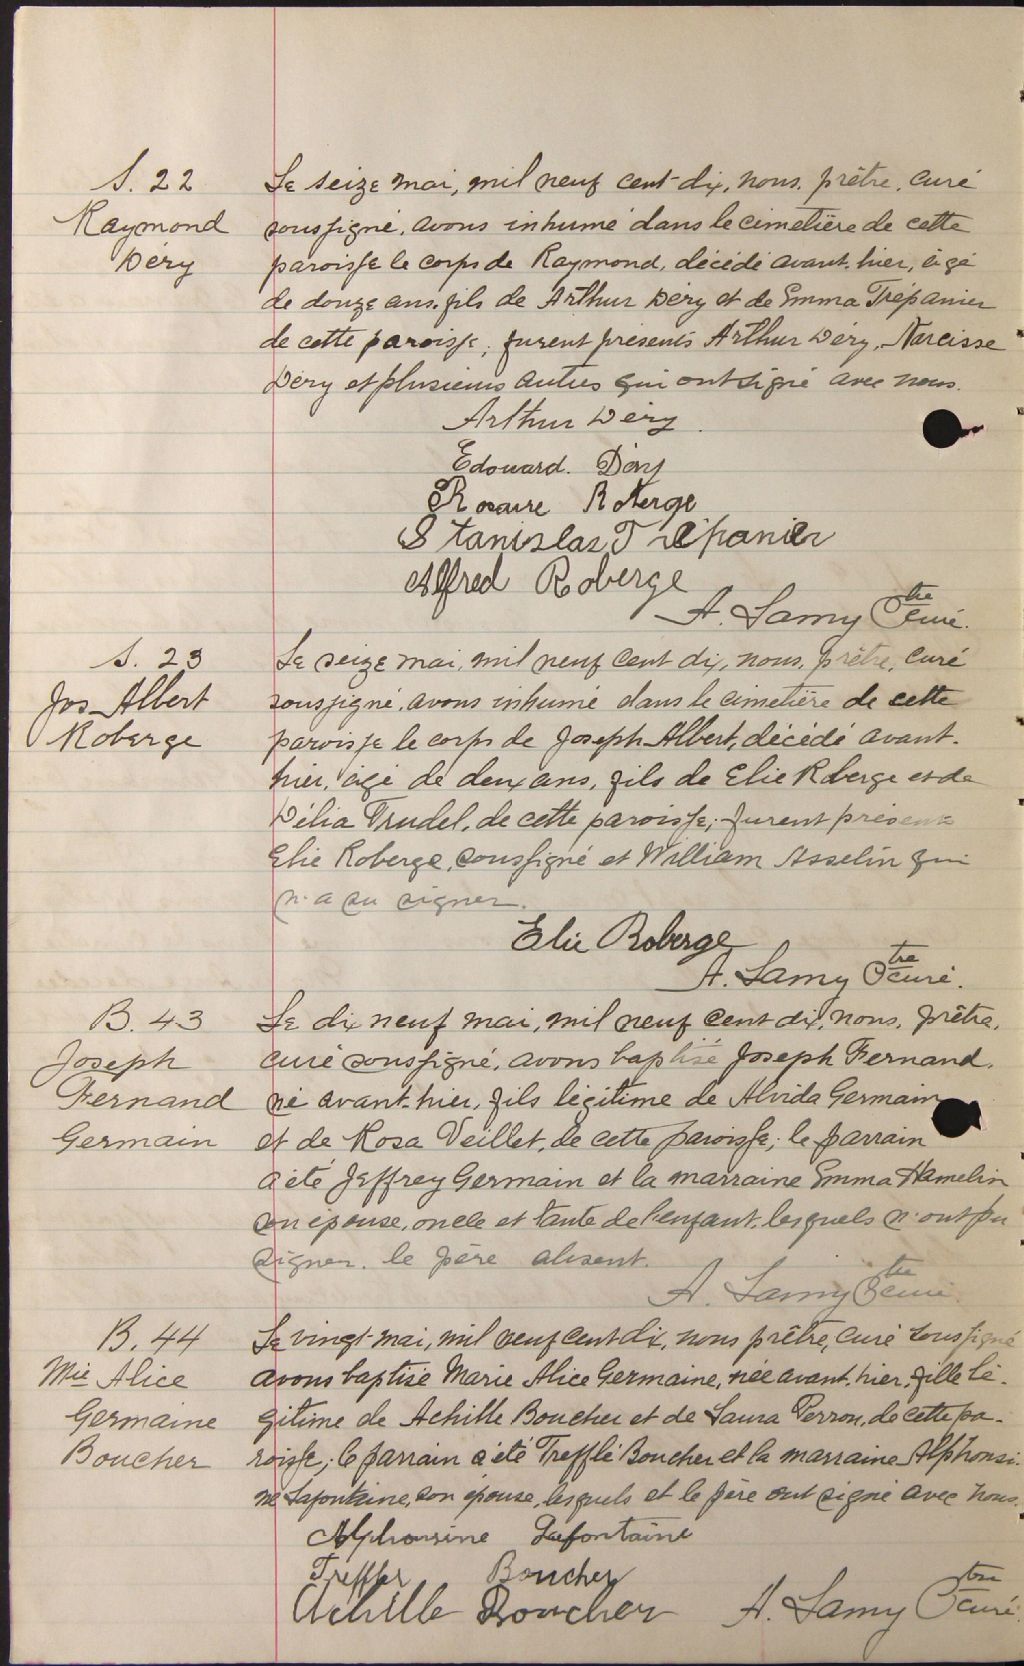 S. 22
Raymond
Déry
Le seize mai, mil neuf cent dix, nous, prêtre, curé
soussigné, avons inhumé dans le cimetière de cette
paroisse le corps de Raymond, décédé avant-hier, âgé
de douze ans, fils de Arthur Déry et de Emma Trépanier
de cette paroisse; furent présents Arthur Déry, Narcisse
Déry et plusieurs autres qui ont signé avec nous.
Arthur Déry
Edouard. Déry
Rosaire Roberge
Stanislas Trépanier
Alfred Roberge
A. Lamy Ptre curé.
S. 23
Jos Albert
Roberge
Le seize mai, mil neuf cent dix, nous, prêtre, curé
soussigné, avons inhumé dans le cimetière de cette
paroisse le corps de Joseph Albert, décédé avant-
hier, âgé de deux ans, fils de Elie Roberge et de
Délia Trudel, de cette paroisse; furent présents
Elie Roberge, soussigné et William Asselin qui
n'a su signer.
Elie Roberge
A. Lamy Ptre curé.
B. 43
Joseph
Fernand
Germain
Le dix neuf mai, mil neuf cent dix, nous, prêtre,
curé soussigné, avons baptisé Joseph Fernand,
né avant-hier, fils légitime de Alvida Germain
et de Rosa Veillet, de cette paroisse; le parrain
a été Jeffrey Germain et la marraine Emma Hamelin
son épouse, oncle et tante de l'enfant, lesquels n'ont pu
signer. le père absent.
A. Lamy Ptre curé.
B. 44
Mie Alice
Germaine
Boucher
Le vingt mai, mil neuf cent dix, nous prêtre, curé soussigné
avons baptisé Marie Alice Germaine, née avant-hier, fille lé-
gitime de Achille Boucher et de Laura Perron, de cette pa-
roisse; le parrain a été Trefflé Boucher et la marraine Alphonsi-
ne Lafontaine, son épouse, lesquels et le père ont signé avec nous.
Alphonsine Lafontaine
Treffler Boucher
Achille Boucher A. Lamy Ptre curé